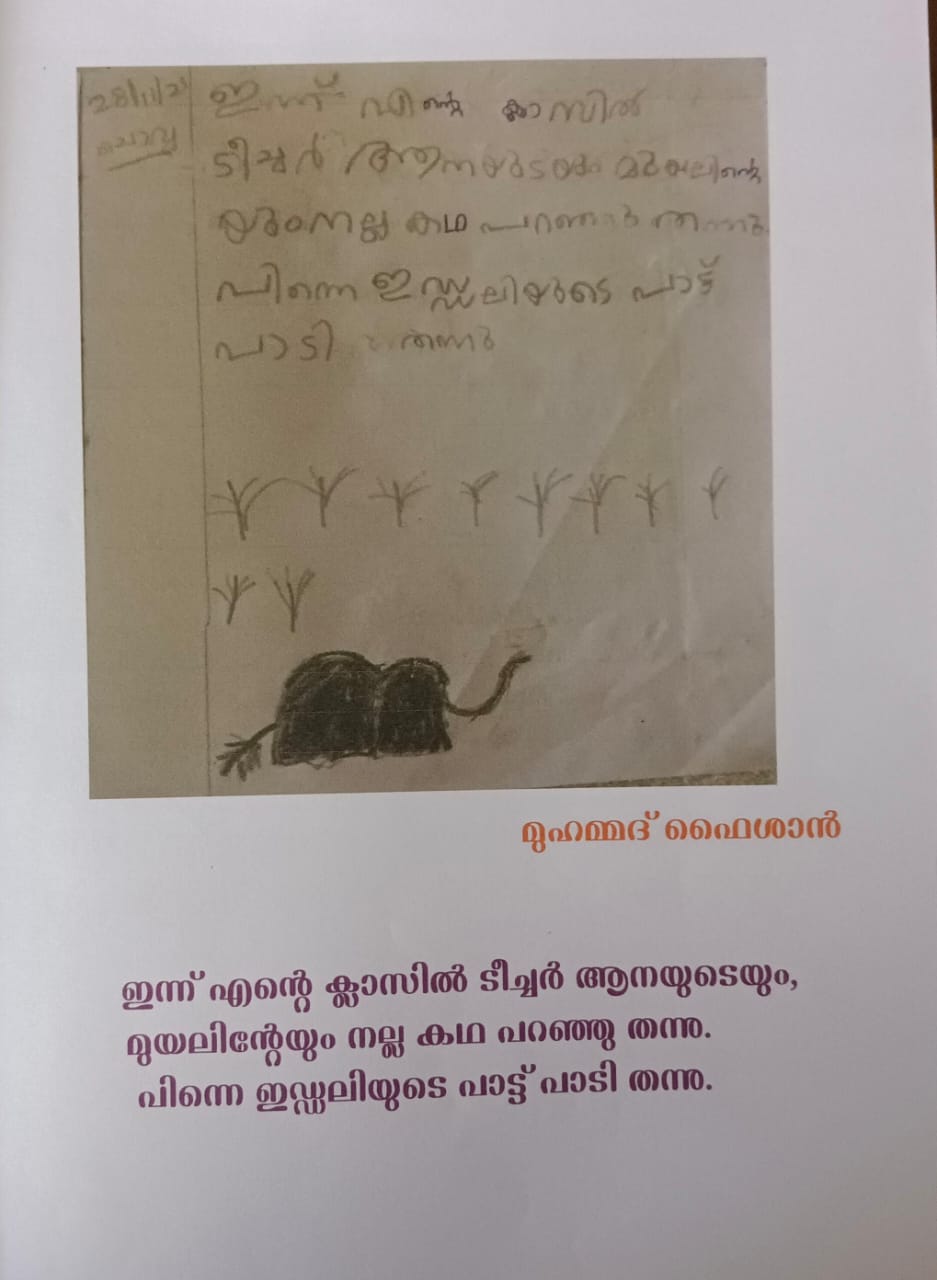 28/11/2
ഇന്ന് എന്റെ ക്ലാസിൽ
ടീച്ചർ ആനയുടേയും മുയലിന്റെ
യും നല്ല കഥ പറഞ്ഞു തന്നു.
പിന്നെ ഇഡ്ഡലിയുടെ പാട്ട്
പാടി തന്നു
മുഹമ്മദ് ഫൈശാൻ
ഇന്ന് എന്റെ ക്ലാസിൽ ടീച്ചർ ആനയുടെയും,
മുയലിന്റേയും നല്ല കഥ പറഞ്ഞു തന്നു.
പിന്നെ ഇഡ്ഡലിയുടെ പാട്ട് പാടി തന്നു.